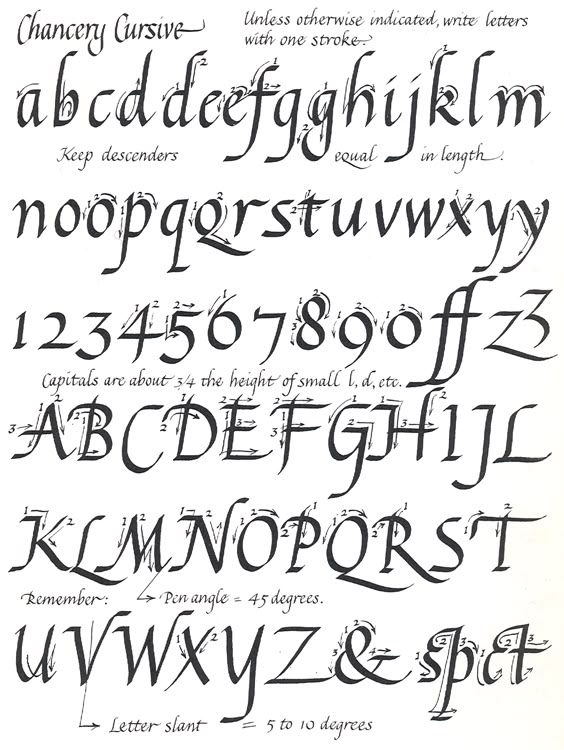 Chancery Cursive
Unless otherwise indicated, write letters
with one stroke.
abcddeefgghijklm
Keep descenders equal in length.
noopqqrstuvwxyy
1234567890ffzz
Capitals are about 3/4 the height of small l, d, etc.
ABCDEFGHIJL
KLMNOPQRST
Remember: Pen angle = 45 degrees.
UVWXYZ& sp ct
Letter slant = 5 to 10 degrees